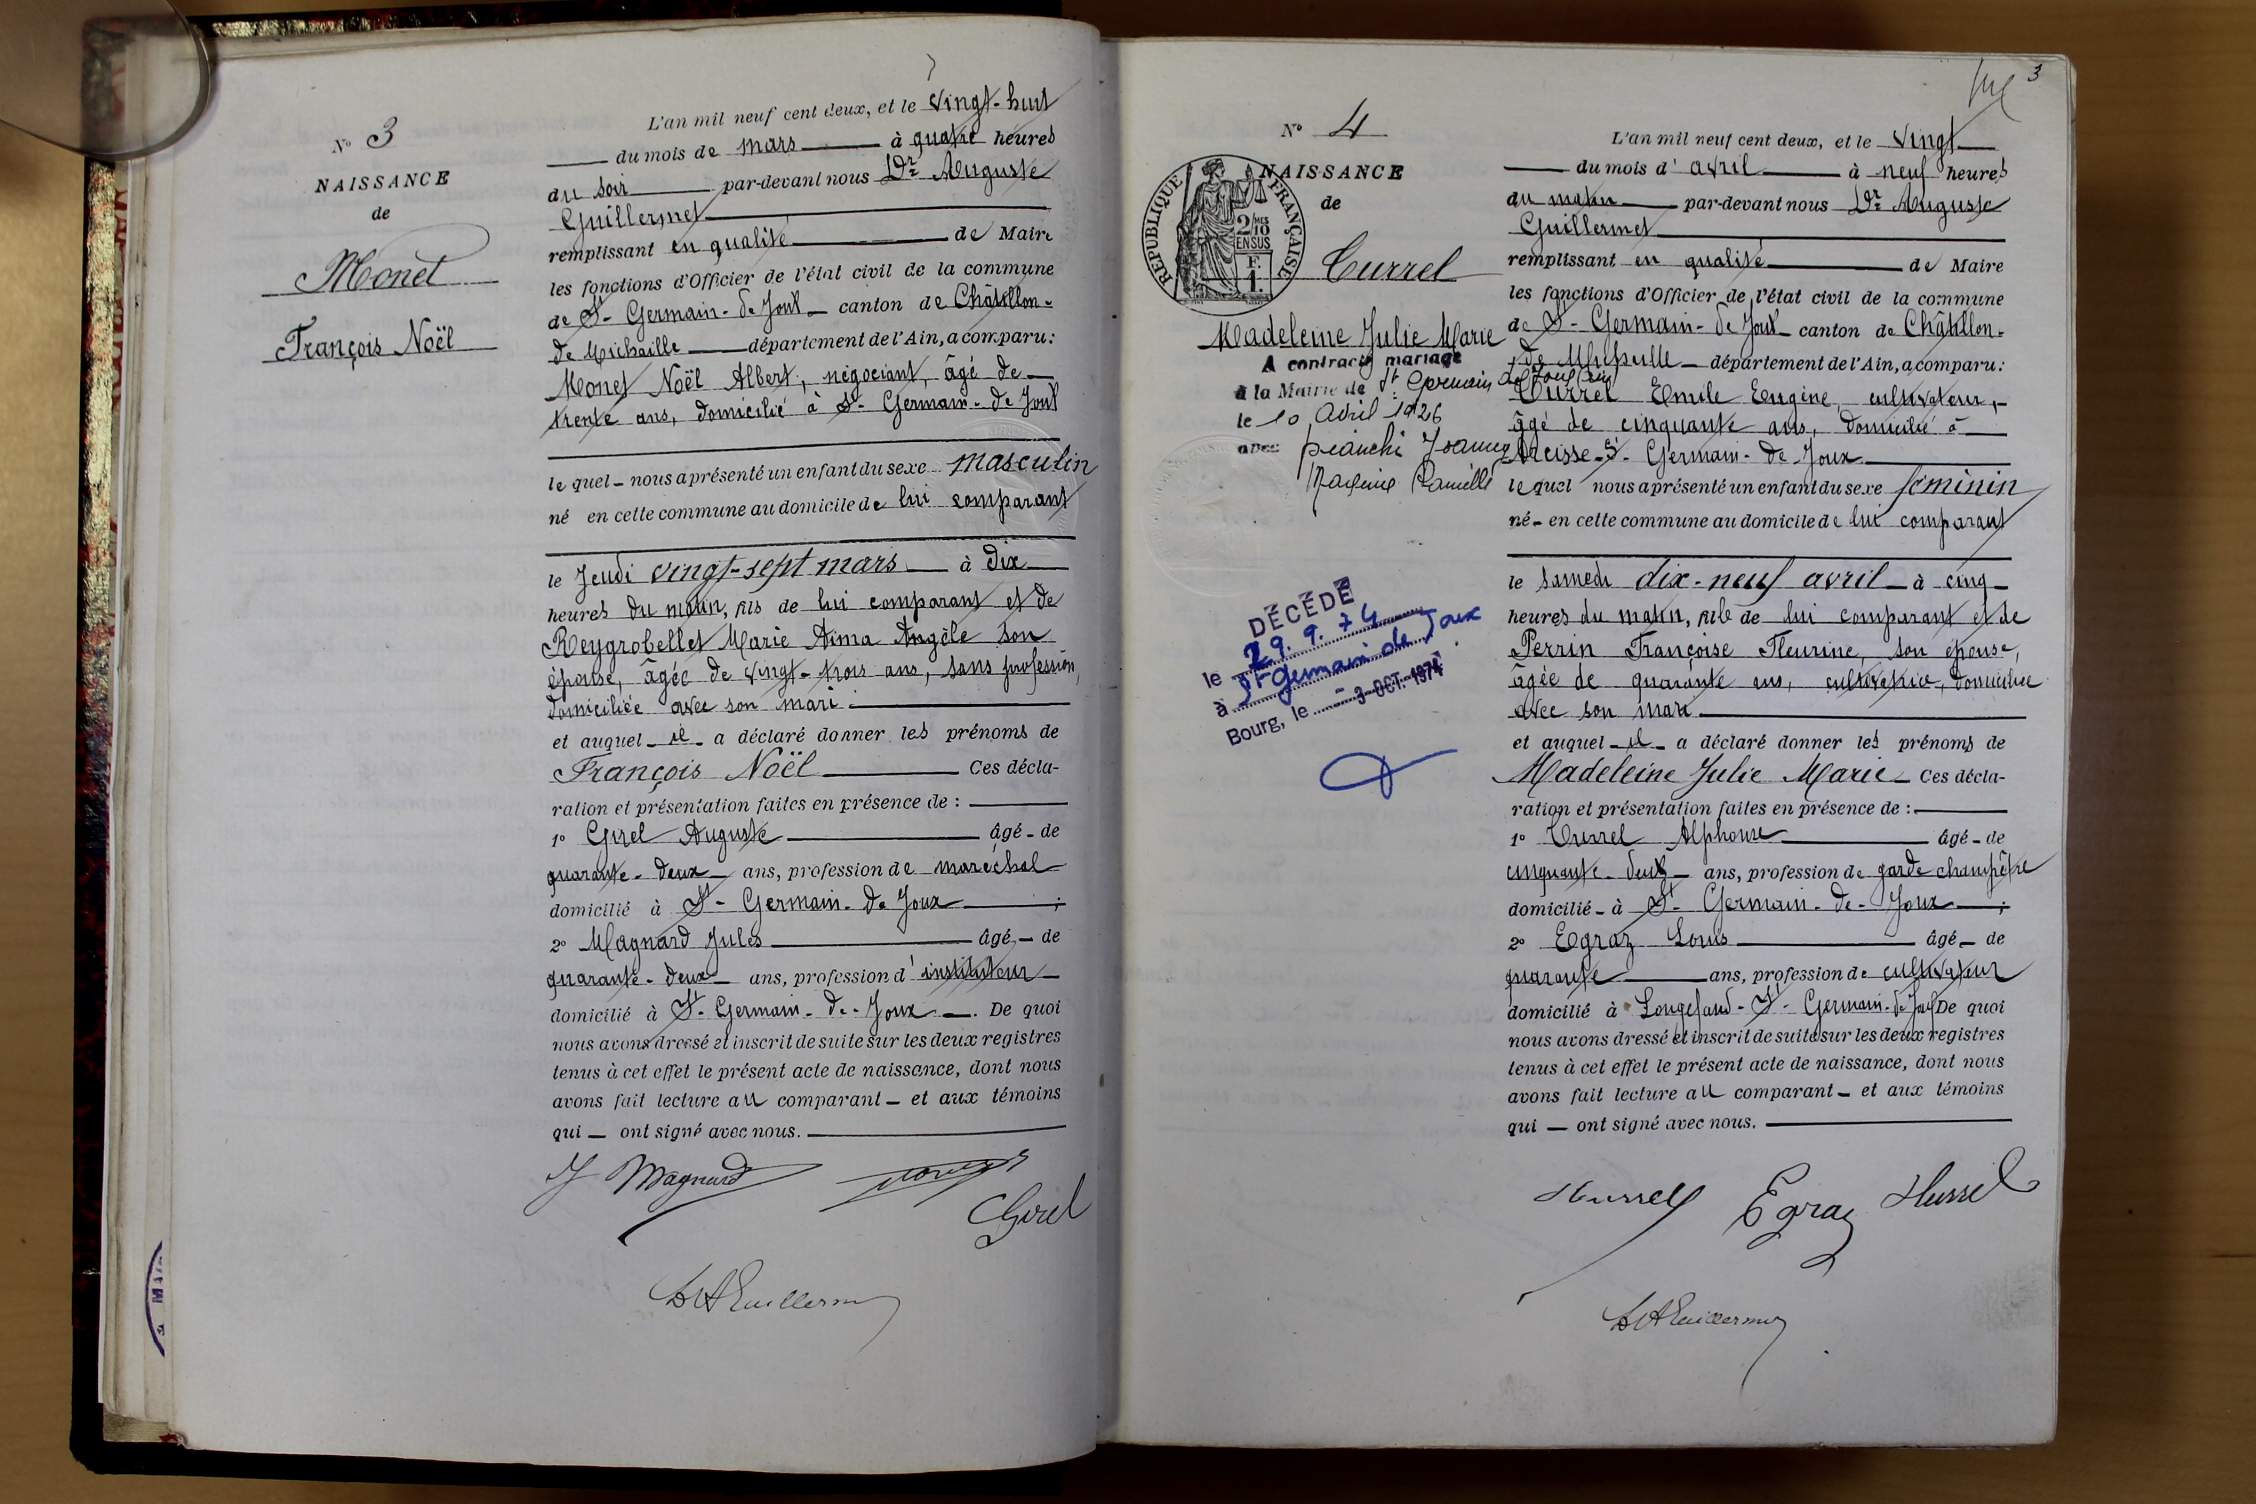 N° 3
NAISSANCE
de
Monet
François Noël
L'an mil neuf cent deux, et le vingt-huit
du mois de mars à quatre heures
du soir par-devant nous Dr Auguste
Guillermet
remplissant en qualité de Maire
les fonctions d'Officier de l'état civil de la commune
de St-Germain-de Joux canton de Châtillon-
de Michaille département de l'Ain, a comparu:
Monet Noël Albert, négociant, âgé de
trente ans, domicilié à St-Germain-de Joux
lequel nous a présenté un enfant du sexe masculin
né en cette commune au domicile de lui comparant
le Jeudi vingt-sept mars à dix
heures du matin, fils de lui comparant et de
Reygrobellet Marie Aima Angèle son
épouse, âgée de vingt-trois ans, sans profession,
domiciliée avec son mari
et auquel il a déclaré donner les prénoms de
François Noël Ces décla-
ration et présentation faites en présence de :
1° Girel Auguste âgé de
quarante-deux ans, profession de maréchal
domicilié à St-Germain-de Joux ;
2° Magnard Jules âgé de
quarante-deux ans, profession d'instituteur
domicilié à St-Germain-de-Joux. De quoi
nous avons dressé et inscrit de suite sur les deux registres
tenus à cet effet le présent acte de naissance, dont nous
avons fait lecture au comparant et aux témoins
qui ont signé avec nous.
J Magnard
Girel
Dr A Guillermet
3
N° 4
NAISSANCE
de
RÉPUBLIQUE FRANÇAISE
2/10
EN SUS
F.
1.
Turrel
Madeleine Julie Marie
A contracté mariage
à la Mairie de St Germain de Joux (Ain)
le 10 Avril 1926
avec
DÉCÉDÉE
le 29.9.74
à St Germain de Joux
Bourg, le -3 OCT. 1974
L'an mil neuf cent deux, et le vingt
du mois d'avril à neuf heures
du matin par-devant nous Dr Auguste
Guillermet
remplissant en qualité de Maire
les fonctions d'Officier de l'état civil de la commune
de St-Germain-de Joux canton de Châtillon-
de Michaille département de l'Ain, a comparu:
Turrel Emile Eugène, cultivateur,
âgé de cinquante ans, domicilié à
St-Germain-de-Joux
lequel nous a présenté un enfant du sexe féminin
né en cette commune au domicile de lui comparant
le samedi dix-neuf avril à cinq
heures du matin, fille de lui comparant et de
Perrin Françoise Fleurine, son épouse,
âgée de quarante ans, cultivatrice, domiciliée
avec son mari
et auquel il a déclaré donner les prénoms de
Madeleine Julie Marie Ces décla-
ration et présentation faites en présence de :
1° Turrel Alphonse âgé de
cinquante-deux ans, profession de garde champêtre
domicilié à St-Germain-de-Joux ;
2° Egraz Louis âgé de
quarante ans, profession de cultivateur
domicilié à Longefand-St-Germain-de Joux De quoi
nous avons dressé et inscrit de suite sur les deux registres
tenus à cet effet le présent acte de naissance, dont nous
avons fait lecture au comparant et aux témoins
qui ont signé avec nous.
Turrel Egraz Turrel
Dr A Guillermet